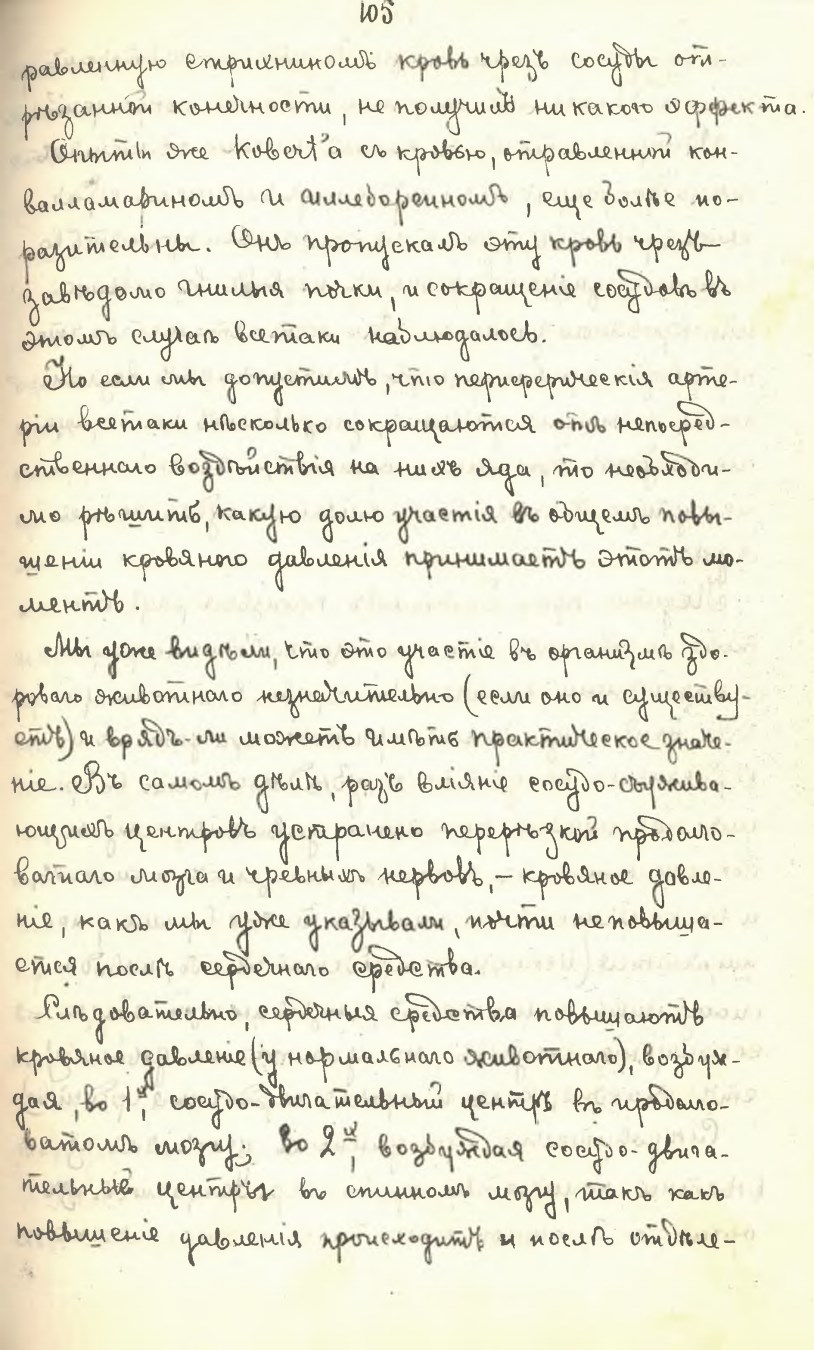 105
равленную стрихниномъ кровь чрезъ сосуды от-
рѣзанной конечности, не получилъ никакого эффекта.
Опыты же Kobert'а съ кровью, отравленной кон-
валламариномъ и иллебореиномъ, еще болѣе по-
разительны. Онъ пропускалъ эту кровь чрезъ
завѣдомо гнилыя почки, и сокращеніе сосудовъ въ
этомъ случаѣ всетаки наблюдалось.
Но если мы допустимъ, что периферическія арте-
ріи всетаки нѣсколько сокращаются отъ непосред-
ственнаго воздѣйствія на нихъ яда, то необходи-
мо рѣшить, какую долю участія въ общемъ повы-
шеніи кровяного давленія принимаетъ этотъ мо-
ментъ.
Мы уже видѣли, что это участіе въ организмѣ здо-
роваго животнаго незначительно (если оно и существу-
етъ) и врядъ-ли можетъ имѣть практическое значе-
ніе. Въ самомъ дѣлѣ, разъ вліяніе сосудо-съужива-
ющихъ центровъ устранено перерѣзкой продолго-
ватаго мозга и чревныхъ нервовъ, – кровяное давле-
ніе, какъ мы уже указывали, почти неповыша-
ется послѣ сердечнаго средства.
Слѣдовательно, сердечныя средства повышаютъ
кровяное давленіе (у нормальнаго животнаго), возбуж-
дая, во 1ыхъ, сосудо-двигательный центръ въ продолго-
ватомъ мозгу; во 2ыхъ, возбуждая сосудо-двига-
тельные центры въ спинномъ мозгу, такъ какъ
повышеніе давленія происходитъ и послѣ отдѣле-